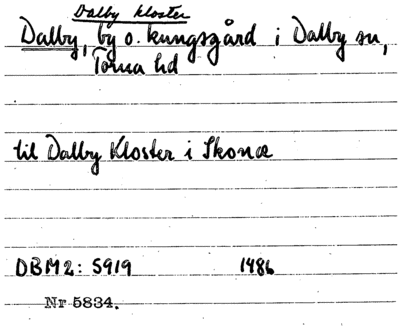 Dalby kloster
Dalby, by o. kungsgård i Dalby sn,
Torna hd
til Dalby Kloster i Skonæ
DBM2: 5919 1486
Nr 5834.